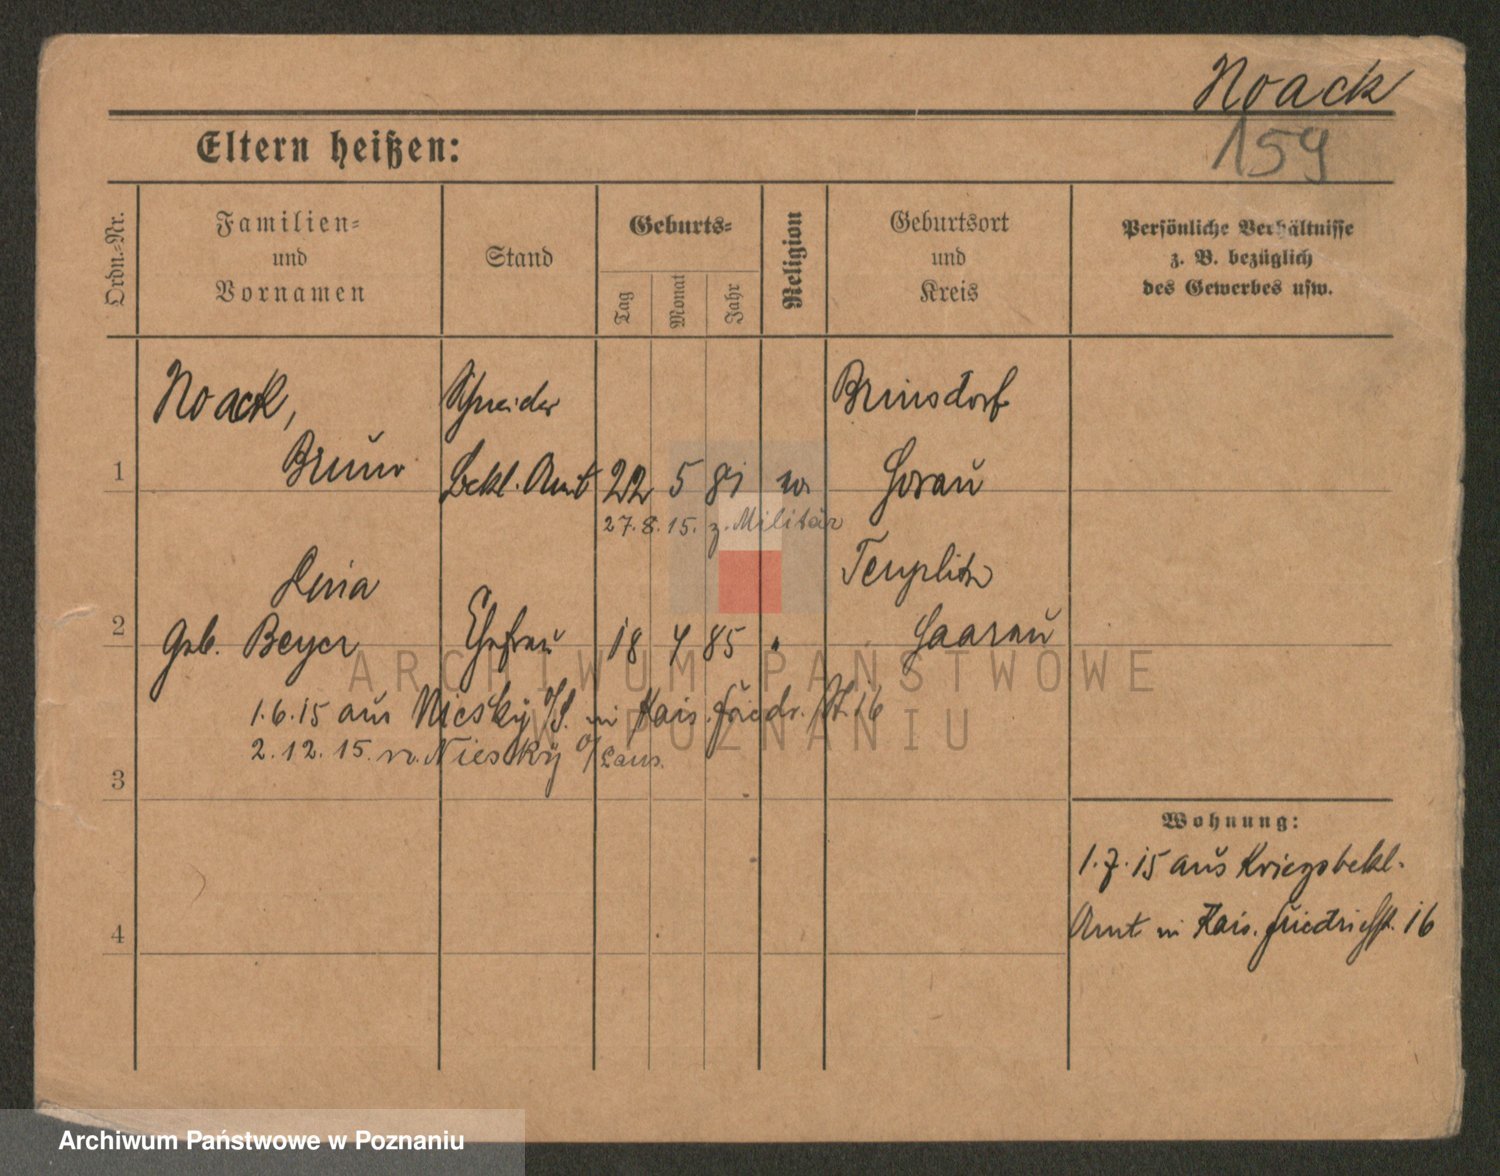 Noack
159
Eltern heißen:
Ordn.-Nr.
Familien-
und
Vornamen
Stand
Geburts-
Tag
Monat
Jahr
Religion
Geburtsort
und
Kreis
Persönliche Verhältnisse
z. B. bezüglich
des Gewerbes usw.
Noack,
Bruno
Schneider
Bekl. Amt
1
22 5 81
Brinsdorf
Sorau
27.8.15. z. Militär
2
geb. Beyer
Ehefrau
18 4 85 "
Teuplitz
1.6.15 aus Niesky O/L. in Kais. Friedr. St. 16
2.12.15. n. Niesky O/Laus.
3
4
Wohnung:
1.7.15 aus Kriegsbekl.
Amt in Kais. Friedrichst. 16
ARCHIWUM PAŃSTWOWE
W POZNANIU
Archiwum Państwowe w Poznaniu